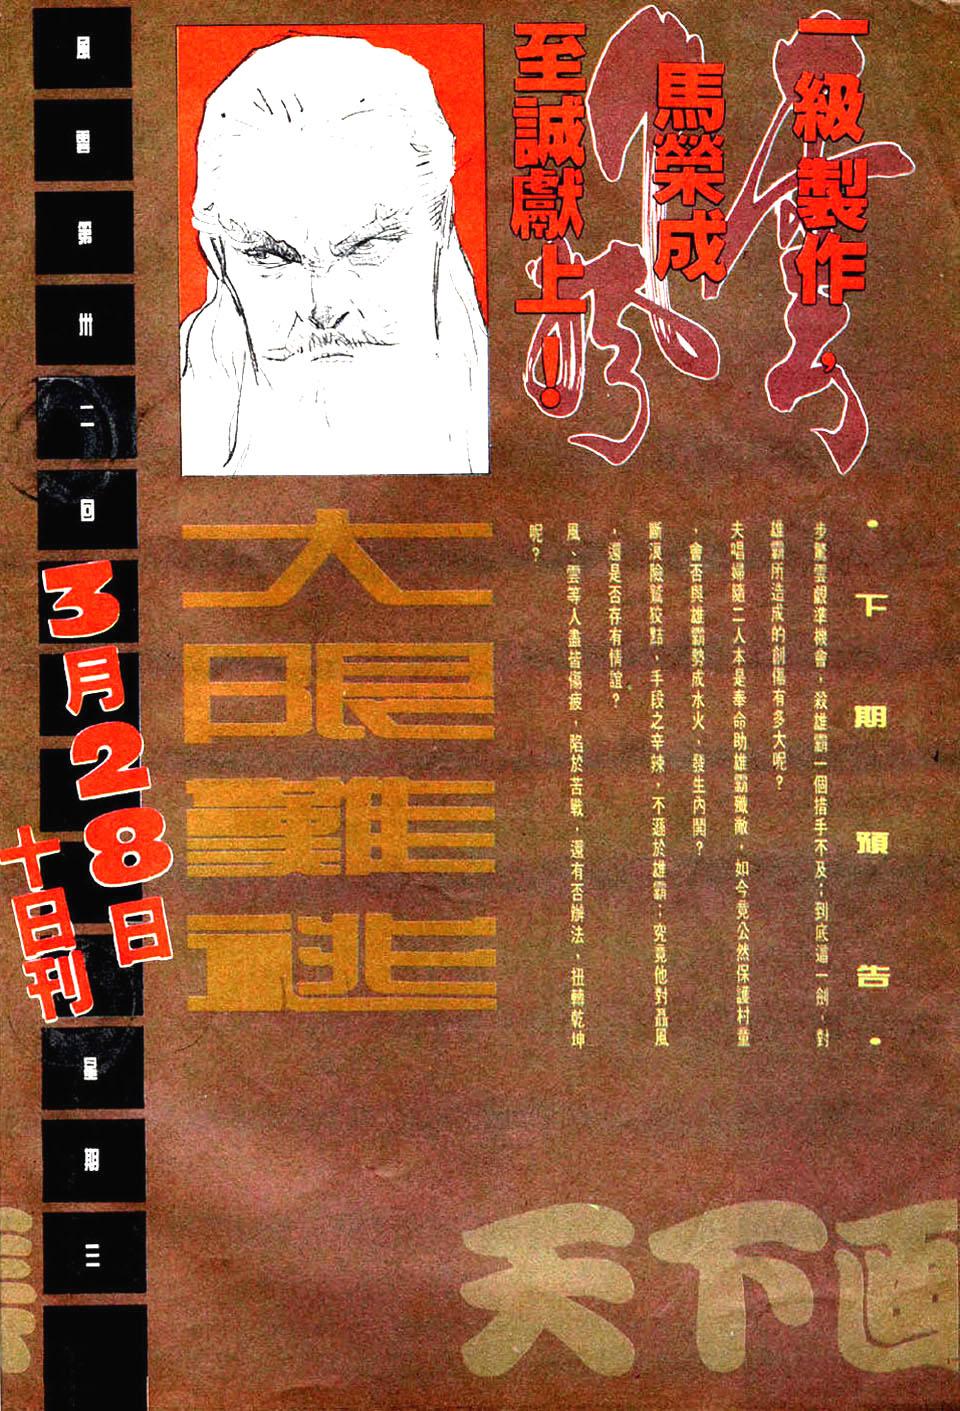 一級製作，
馬榮成
至誠獻上！
風雲
•下期預告•
步驚雲覷準機會，殺雄霸一個措手不及；到底這一劍，對
雄霸所造成的創傷有多大呢？
夫唱婦隨二人本是奉命助雄霸殲敵，如今竟公然保護村童
，會否與雄霸勢成水火、發生內鬨？
斷浪險鷙狡黠，手段之辛辣，不遜於雄霸；究竟他對聶風
，還是否存有情誼？
風、雲等人盡皆傷疲，陷於苦戰，還有否辦法，扭轉乾坤
呢？
大限難逃
風雲第卅二回
3月28日
星期三
十日刊
天下画